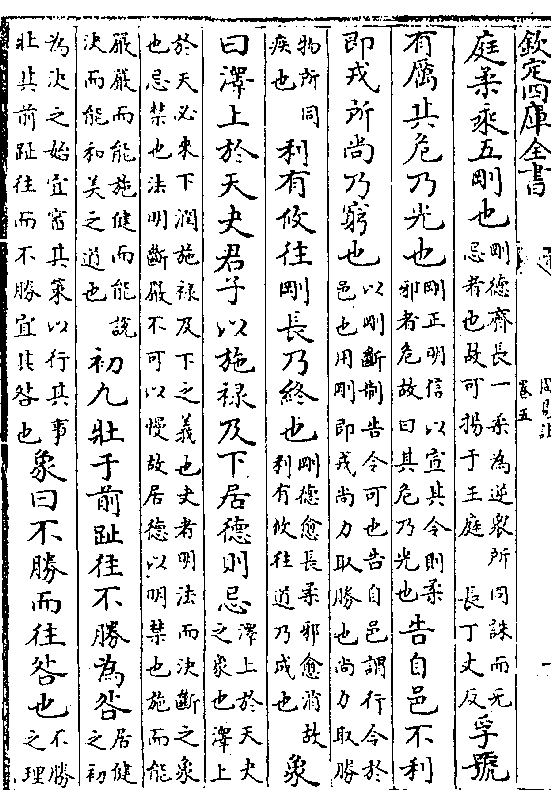 欽定四庫全書
周易注
卷五
庭柔乘五剛也剛德齊長一柔為逆衆所同誅而无忌者也故可揚于王庭　長丁丈反孚號
有厲其危乃光也剛正明信以宣其令則柔邪者危故曰其危乃光也告自邑不利
即戎所尚乃窮也以剛斷制告令可也告自邑謂行令於邑也用剛即戎尚力取勝也尚力取勝
物所同疾也利有攸往剛長乃終也剛德愈長柔邪愈消故利有攸往道乃成也象
曰澤上於天夬君子以施禄及下居德則忌澤上於天夬之象也澤上
於天必來下潤施禄及下之義也夬者明法而決斷之象也忌禁也法明斷嚴不可以慢故居德以明禁也施而能
嚴嚴而能施健而能說決而能和美之道也初九壯于前趾往不勝為咎居健之初
為决之始宜審其策以行其事壯其前趾往而不勝宜其咎也象曰不勝而往咎也不勝之理